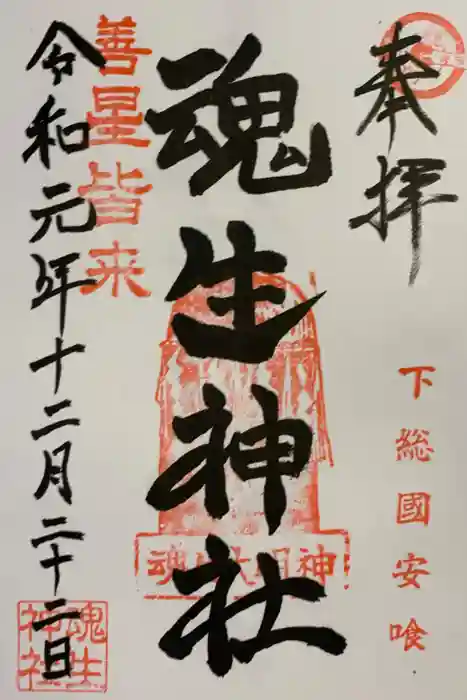 奉拝
下総國安喰
魂生神社
魂生大明神
善星皆来
令和元年十二月二十二日
魂生神社